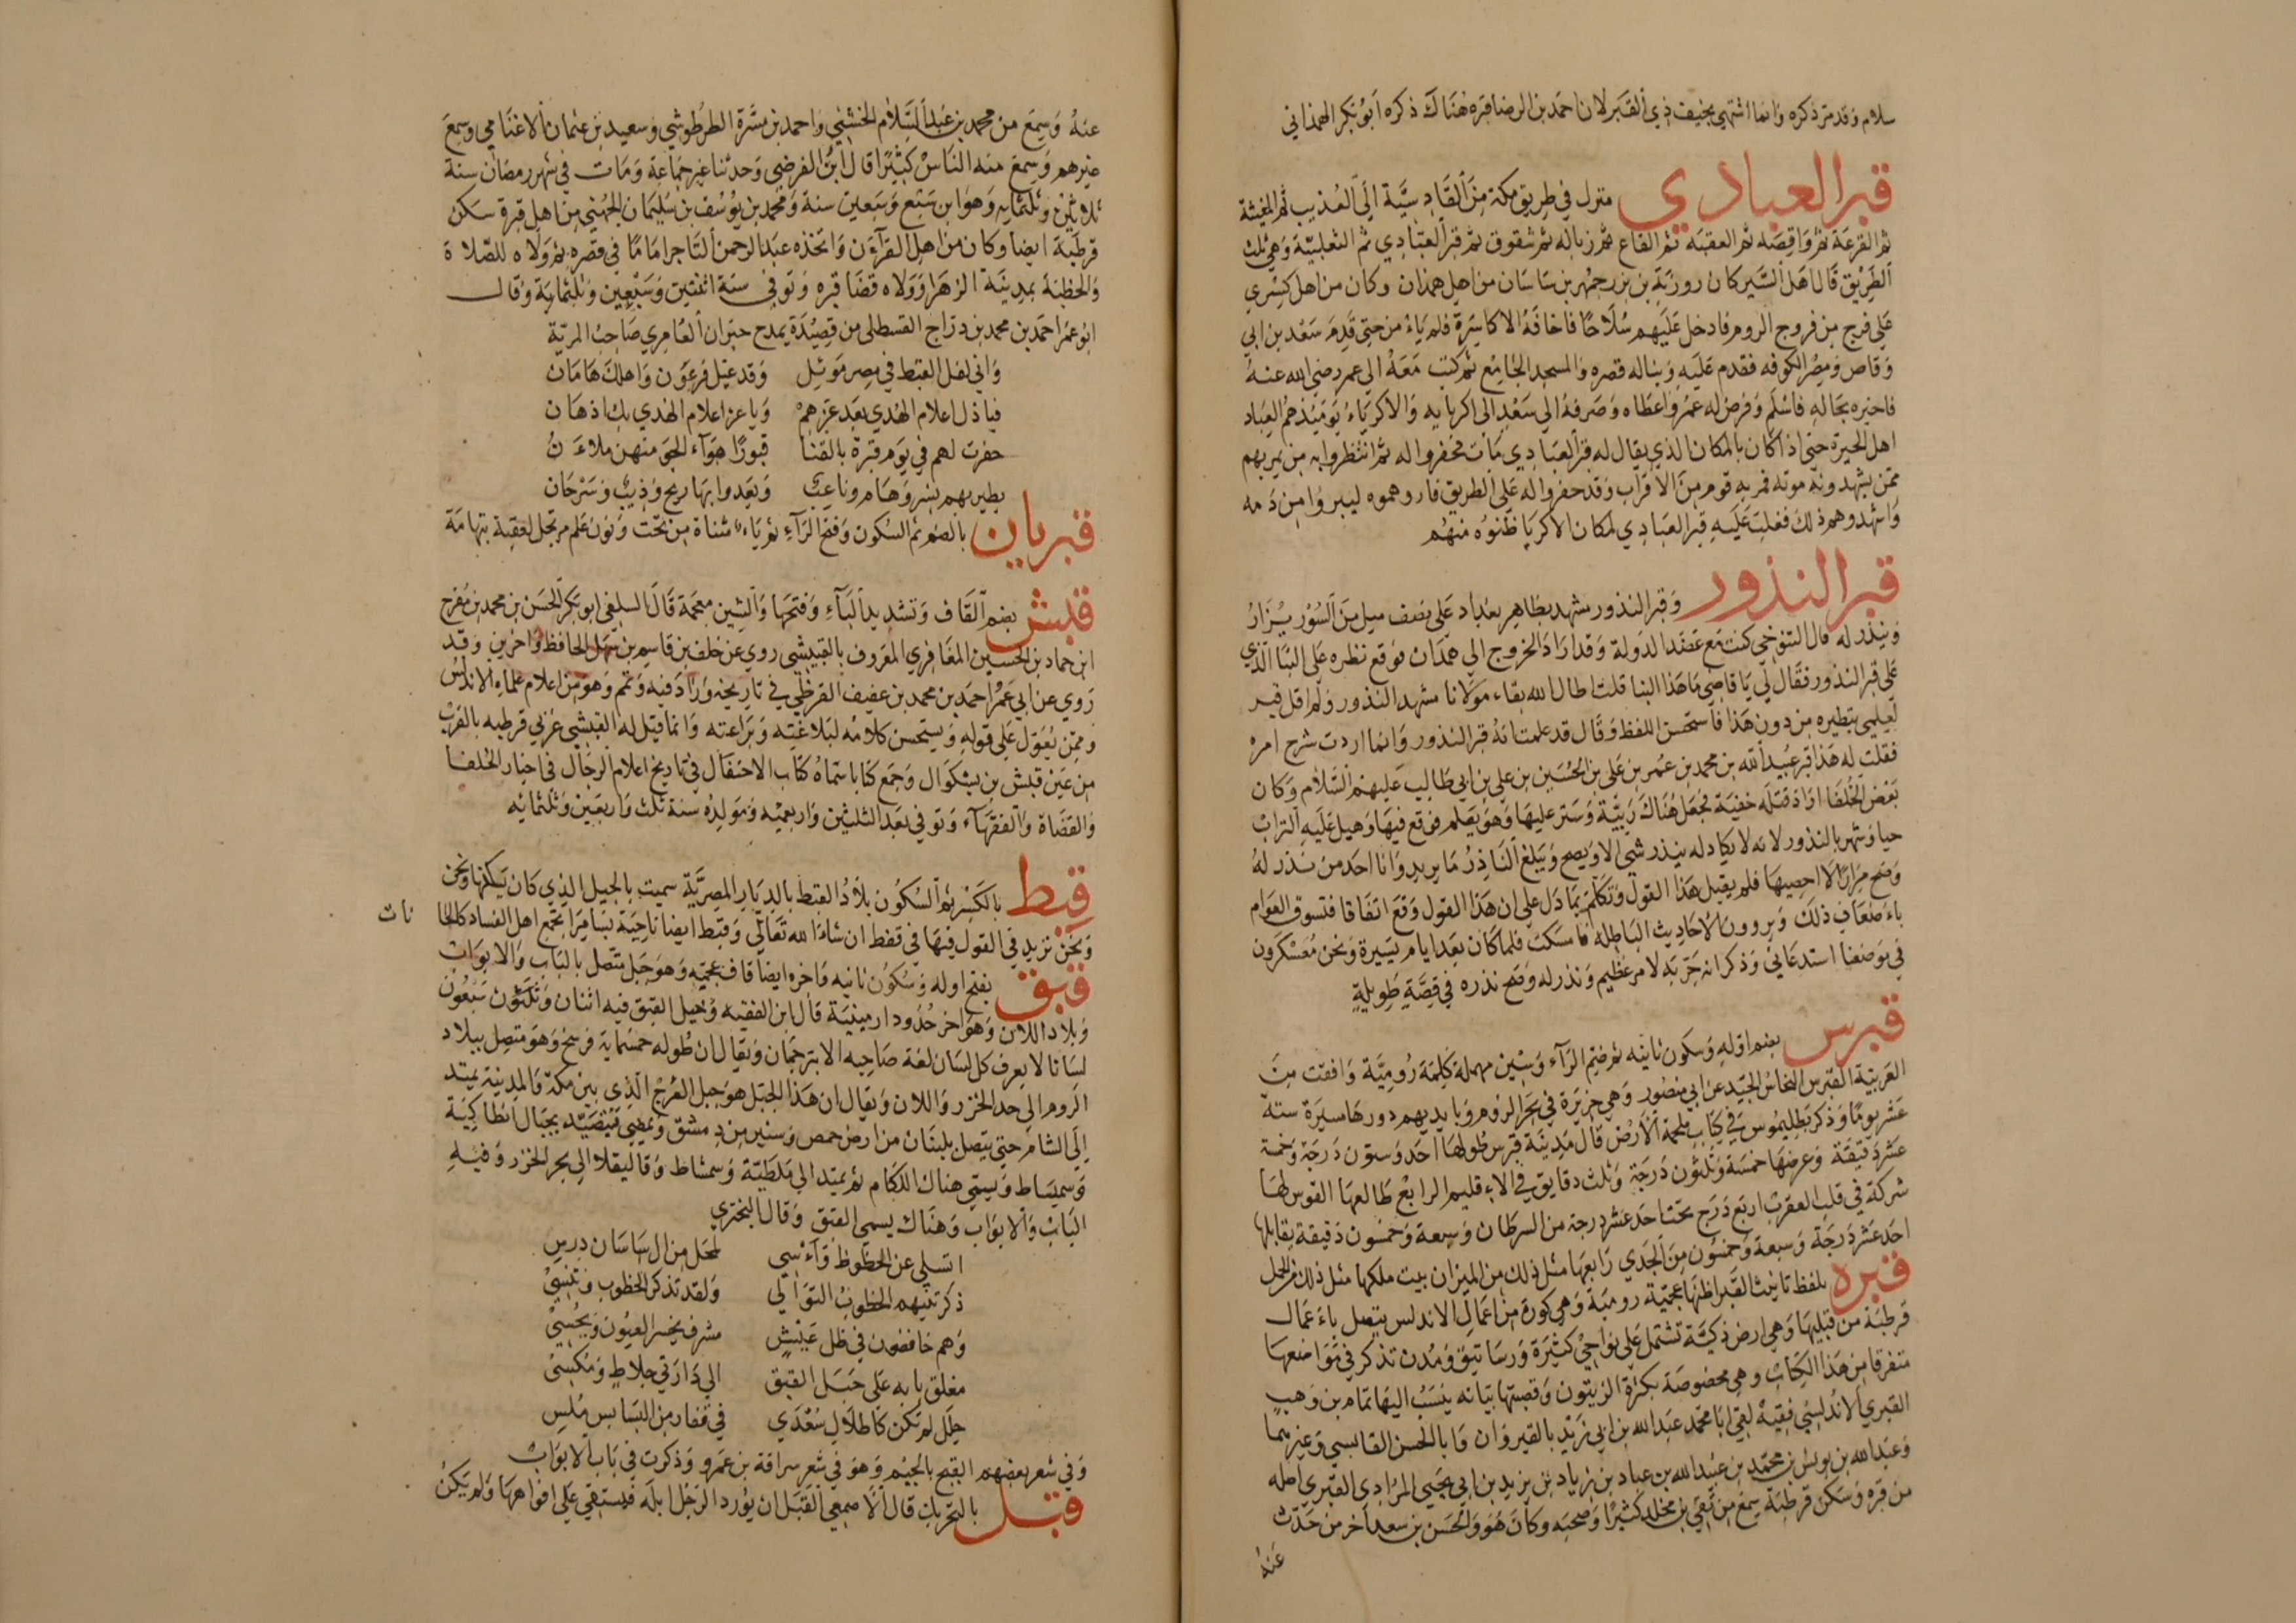 سلام وقد مر ذكره وانما اشتهى بخيف ذي القبر لان احمد بن الرضا قبره هناك ذكره ابو بكر الهمذاني
قبر العبادي منزل في طريق مكة من القادسية الى العذيب ثم المغيثة
ثم القرعة ثم واقصه ثم العقبه ثم القاع ثم زباله ثم شقوق ثم قبر العبادي ثم الثعلبية وهي ثلث
الطريق قال اهل السير كان روزبة بن بزرجمهر بن ساسان من اهل همذان وكان من اهل كسري
على فرج من فروج الروم فادخل عليهم سلاحا فاخافه الاكاسرة فلم يامن حتى قدم سعد بن ابي
وقاص ومصر الكوفه فقدم عليه وبنا له قصره والمسجد الجامع ثم كتب معه الي عمر رضي الله عنه
فاخبره بحاله فاسلم وفرض له عمر واعطاه وصرفه الي سعد الى اكريايه والاكرياء يومئذ هم العباد
اهل الحيرة حتى اذا كان بالمكان الذي يقال له قبر العبادي مات فحفروا له ثم انتظروا به من يمر بهم
ممن يشهدونه موته فمر به قوم من الاعراب وقد حفروا له على الطريق فاروهموه ليبروا من دمه
واشهدوهم ذلك فغلب عليه قبر العبادي لمكان الاكريا ظنوه منهم
قبر النذور وقبر النذور مشهد بظاهر بغداد على نصف ميل من السور يزار
وينذر له قال التنوخي كنت مع عضد الدولة وقد اراد الخروج الي همذان فوقع نظره على البنا الذي
على قبر النذور فقال لي يا قاضي ما هذا البنا قلت اطال الله بقاء مولانا مشهد النذور ولم اقل قبر
لعلمي بتطيره من دون هذا فاستحسن اللفظ وقال قد علمت انه قبر النذور وانما اردت شرح امره
فقلت له هذا قبر عبيد الله بن محمد بن عمر بن علي بن الحسين بن علي بن ابي طالب عليهم السلام وكان
بعض الخلفا اراد قتله خفية فجعل هناك زبية وستر عليها وهو لا يعلم فوقع فيها وهيل عليه التراب
حيا وشهر بالنذور لانه لا يكاد له ينذر شي الا ويصح ويبلغ الناذر ما يريد وانا احد من نذر له
وصح مرارا لا احصيها فلم يقبل هذا القول وتكلم بما دل علي ان هذا القول وقع اتفاقا فتسوق العوام
باضعاف ذلك ويروون الاحاديث الباطله فامسكت فلما كان بعد ايام يسيرة ونحن معسكرون
في موضعنا استدعاني وذكر انه جربه لامر عظيم ونذر له وصح نذره في قصة طويلة
قبرس بضم اوله وسكون ثانيه ثم ضم الراء وسين مهملة كلمة رومية وافقت من
العربية القبرس النحاس الجيد عن ابي منصور وهي جزيرة في بحر الروم وبايديهم دورها مسيرة ستة
عشر يوما وذكر بطليموس في كتاب ملحمة الارض قال مدينة قبرس طولها احد وستون درجة وخمسة
عشر دقيقة وعرضها خمسة وثلثون درجة وثلث دقايق في الاقليم الرابع طالعها القوس لها
شركة في قلب العقرب اربع درج تحتا حد عشر درجة من السرطان وسبعة وخمسون دقيقة يقابلها
احد عشر درجة وسبعة وخمسون من الجدي رابعها مثل ذلك من الميزان بيت ملكها مثل ذلك من الحمل
قبره بلفظ تانيث القبر اظنها عجمية رومية وهي كورة من اعمال الاندلس يتصل باعمال
قرطبة من قبليها وهي ارض زكية تشتمل على نواحي كثيرة ورساتيق ومدن تذكر في مواضعها
متفرقا من هذا الكتاب وهي مخصوصة بكثرة الزيتون وقصبتها بيانه ينسب اليها تمام بن وهب
القبري الاندلسي فقيه لقي ابا محمد عبد الله بن ابي زيد بالقيروان وابا الحسن القابسي وغيرهما
وعبد الله بن يونس بن محمد بن عبيد الله بن عباد بن زياد بن يزيد بن ابي يحيي المرادي القبري اصله
من قبره وسكن قرطبة سمع من بقي بن مخلد كثيرا وصحبه وكان هو والحسن بن سعد آخر من حدث
عنه
عنه وسمع من محمد بن عبد السلام الخشني واحمد بن مسرة الطرطوشي وسعيد بن عثمان الاغنامي وسمع
غيرهم وسمع منه الناس كثيرا قال ابن الفرضي وحدثنا غير جماعة ومات في شهر رمضان سنة
ثلاثين وثلثمايه وهو ابن سبع وسبعين سنة ومحمد بن يوسف بن سليمان الجهني من اهل قبرة سكن
قرطبة ايضا وكان من اهل القرآن واتخذه عبد الرحمن التاجر اماما في قصره ثم ولاه للصلاة
والخطبة بمدينة الزهرا وولاه قضا قبره وتوفي سنة اثنتين وسبعين وثلثماية وقال
ابو عمر احمد بن محمد بن دراج القسطلي من قصيدة يمدح خيران العامري صاحب المرية
واني لفل القبط في مصر موئل وقد عيل فرعون واهلك هامان
فيا ذل اعلام الهدي بعد عزهم ويا عز اعلام الهدي بك اذ هان
حفرت لهم في يوم قبرة بالقنا قبورا هواء الجو منهن ملاءن
يطير بهم نسر وهام وناعب ويعدوا بها ريح وذيب وسرحان
قبريان بالضم ثم السكون وفتح الراء ثم ياء مثناة من تحت ونون علم مرتجل لعقبة بتهامة
قبش بضم القاف وتشديد الباء وفتحها والشين معجمة قال السلفي ابو بكر الحسن بن محمد بن مفرج
ابن حماد بن الحسين المعافري المعروف بالقبيشي روي عن خلف بن قاسم بن سهل الحافظ واخرين وقد
روي عن ابي عمر احمد بن محمد بن عفيف القرطبي في تاريخه وزاد فيه وتمم وهو من اعلام علماء الاندلس
وممن يعول على قوله ويستحسن كلامه لبلاغته وبراعته وانما قيل له القبشي غربي قرطبه بالقرب
من عين قبش بن بشكوال وجمع كتابا سماه كتاب الاحتفال في تاريخ اعلام الرجال في اخبار الخلفا
والقضاة والفقهاء وتوفي بعد الثلثين واربعميه ومولده سنة ثلث واربعين وثلثمائه
قبط بالكسر ثم السكون بلاد القبط بالديار المصرية سميت بالجيل الذي كان يسكنها ونحن
ونحن نزيد في القول فيها في قفط ان شاء الله تعالى وقبط ايضا ناحية بسامرا تجمع اهل الفساد كالحا
نات
قبق بفتح اوله وسكون ثانيه واخره ايضا قاف عجميه وهو جبل متصل بالباب والابواب
وبلاد اللان وهو اخر حدود ارمينية قال ابن الفقيه وجبل القبق فيه اثنان وثلثون سبعون
لسانا لا يعرف كل لسان لغة صاحبه الا بترجمان ويقال ان طوله خمسماية فرسخ وهو متصل ببلاد
الروم الى حد الخزر واللان ويقال ان هذا الجبل هو جبل العرج الذي بين مكة والمدينة يمتد
إلى الشام حتى يتصل بلبنان من ارض حمص وسنير من دمشق ويمضي فيتصل بجبال انطاكية
وسميساط ويسمى هناك اللكام ثم يمتد الى ملطية وسمشاط وقاليقلا الى بحر الخزر وفيه
الباب والابواب وهناك يسمى القبق وقال البحتري
اتسلي عن الحظوظ وآءسي لمحل من ال ساسان درس
ذكرتنيهم الخطوب التوالي ولقد تذكر الخطوب وتنسي
وهم خافضون في ظل عيش مشرف يحسر العيون ويخسي
مغلق بابه على جبل القبق الي دارتي خلاط ومكس
حلل لم تكن كاطلال سعدي في قفار من البسابس ملس
وفي شعر بعضهم القبج بالجيم وهو في شعر سراقة بن عمرو وذكرت في باب الابواب
قبل بالتحريك قال الاصمعي القبل ان يورد الرجل ابله فيستقي على افواهها ولم يكن